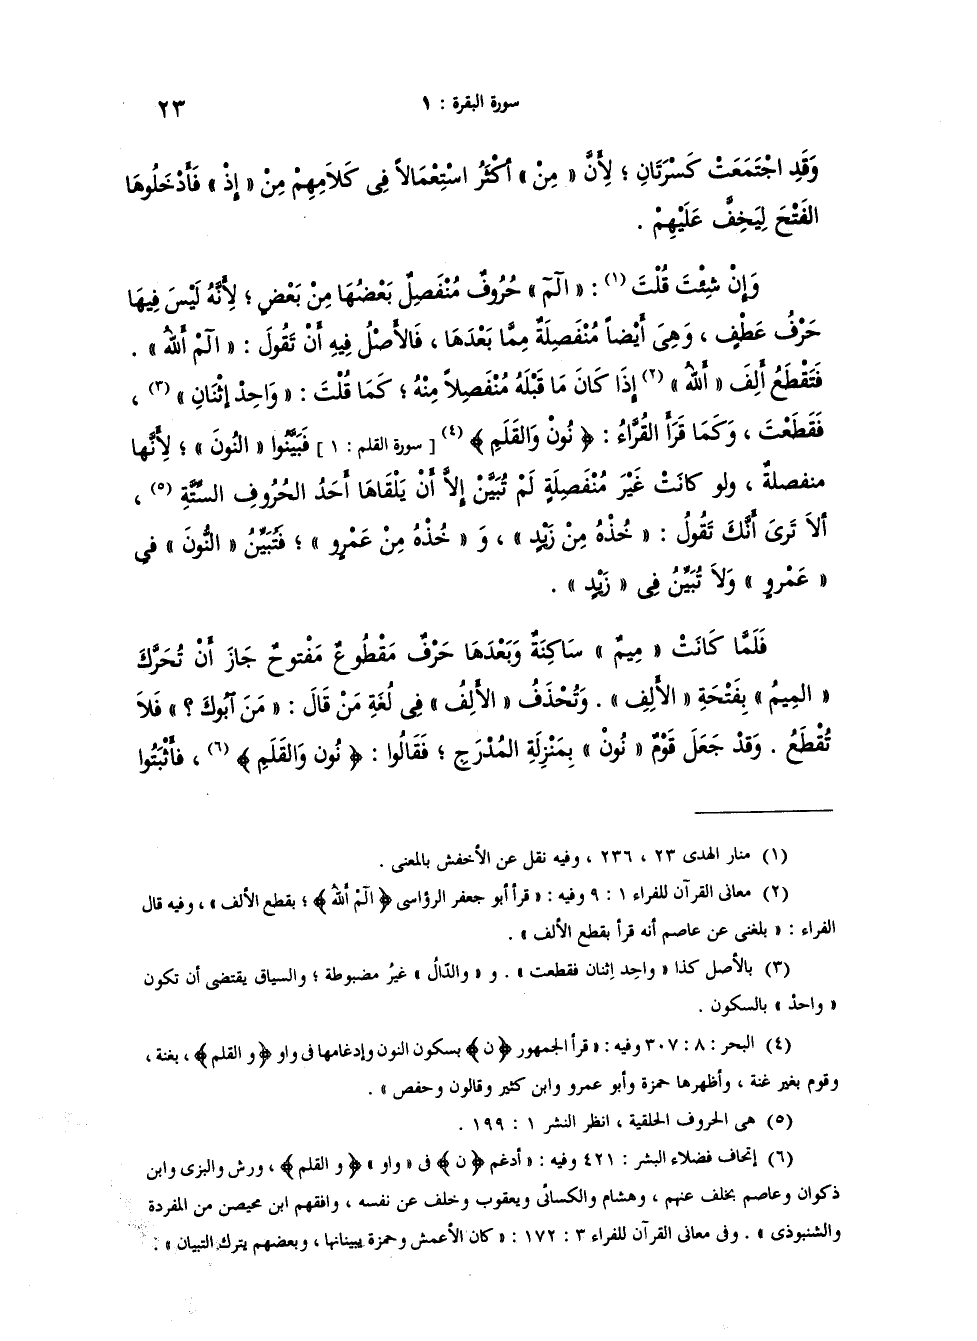 سورة البقرة : ١
٢٣
وَقَدِ اجْتَمَعَتْ كَسْرَتَانِ ؛ لِأَنَّ « مِنْ » أَكْثَرُ اسْتِعْمَالاً فِى كَلَامِهِمْ مِنْ « إِذْ » فَأَدْخَلُوهَا
الفَتْحَ لِيَخِفَّ عَلَيْهِمْ .
وَإِنْ شِئْتَ قُلْتَ (١) : « الٓمٓ » حُرُوفٌ مُنْفَصِلٌ بَعْضُهَا مِنْ بَعْضٍ ؛ لِأَنَّهُ لَيْسَ فِيهَا
حَرْفُ عَطْفٍ ، وَهِىَ أَيْضاً مُنْفَصِلَةٌ مِمَّا بَعْدَهَا ، فَالأَصْلُ فِيهِ أَنْ تَقُولَ : « الٓمْ أَللهُ » .
فَتَقْطَعُ أَلِفَ « أَللهُ » (٢) إِذَا كَانَ مَا قَبْلَهُ مُنْفَصِلاً مِنْهُ ؛ كَمَا قُلْتَ : « وَاحِدْ إِثْنَانِ » (٣) ،
فَقَطَعْتَ ، وَكَمَا قَرَأَ القُرَّاءُ : ﴿ نُونْ وَالقَلَمِ ﴾ (٤) [ سورة القلم : ١ ] فَبَيَّنُوا « النُونَ » ؛ لِأَنَّها
منفصلةٌ ، ولو كانَتْ غَيْرَ مُنْفَصِلَةٍ لَمْ تُبَيَّنْ إِلاَّ أَنْ يَلْقَاهَا أَحَدُ الحُرُوفِ السِتَّةِ (٥) ،
ألاَ تَرىَ أَنَّكَ تَقُولُ : « خُذْهُ مِنْ زَيْدٍ » ، وَ « خُذْهُ مِنْ عَمْرٍو » ؛ فَتُبَيِّنُ « النُّونَ » في
« عَمْرٍو » وَلاَ تُبَيِّنُ فِى « زَيْدٍ » .
فَلَمَّا كَانَتْ « مِيمٌ » سَاكِنَةٌ وَبَعْدَهَا حَرْفٌ مَقْطُوعٌ مَفْتوحٌ جَازَ أَنْ تُحَرَّكَ
« المِيمُ » بِفَتْحَةِ « الأَلِفِ » . وَتُحْذَفُ « الأَلِفُ » فِى لُغَةِ مَنْ قَالَ : « مَنَ آبُوكَ ؟ » فَلاَ
تُقْطَعُ . وَقَدْ جَعَلَ قَوْمٌ « نُونْ » بِمَنْزِلَةِ المُدْرَجِ ؛ فَقَالُوا : ﴿ نُون وَالقَلَمِ ﴾ (٦) ، فَأَثْبَتُوا
(١) منار الهدى ٢٣ ، ٢٣٦ ، وفيه نقل عن الأخفش بالمعنى .
(٢) معانى القرآن للفراء ١ : ٩ وفيه : « قرأ أبو جعفر الرؤاسى ﴿ الٓمْ أَللهُ ﴾ ؛ بقطع الألف » ، وفيه قال
الفراء : « بلغنى عن عاصم أنه قرأ بقطع الألف » .
(٣) بالأصل كذا « واحِد اِثنان فقطعت » . و « والدّالُ » غيرُ مضبوطة ؛ والسياق يقتضى أن تكون
« واحدْ » بالسكون .
(٤) البحر : ٨ : ٣٠٧ وفيه : « قرأ الجمهور ﴿ ن ﴾ بسكون النون وإدغامها فى واو ﴿ و القلم ﴾ ، بغنة ،
وقوم بغير غنة ، وأظهرها حمزة وأبو عمرو وابن كثير وقالون وحفص » .
(٥) هى الحروف الحلقية ، انظر النشر ١ : ١٩٩ .
(٦) إتحاف فضلاء البشر : ٤٢١ وفيه : « أدغم ﴿ ن ﴾ فى « واو » ﴿ و القلم ﴾ ، ورش والبزى وابن
ذكوان وعاصم بخلف عنهم ، وهشام والكسائى ويعقوب وخلف عن نفسه ، وافقهم ابن محيصن من المفردة
والشنبوذى » . وفى معانى القرآن للفراء ٣ : ١٧٢ : « كان الأعمش وحمزة يبينانها ، وبعضهم يترك التبيان » .